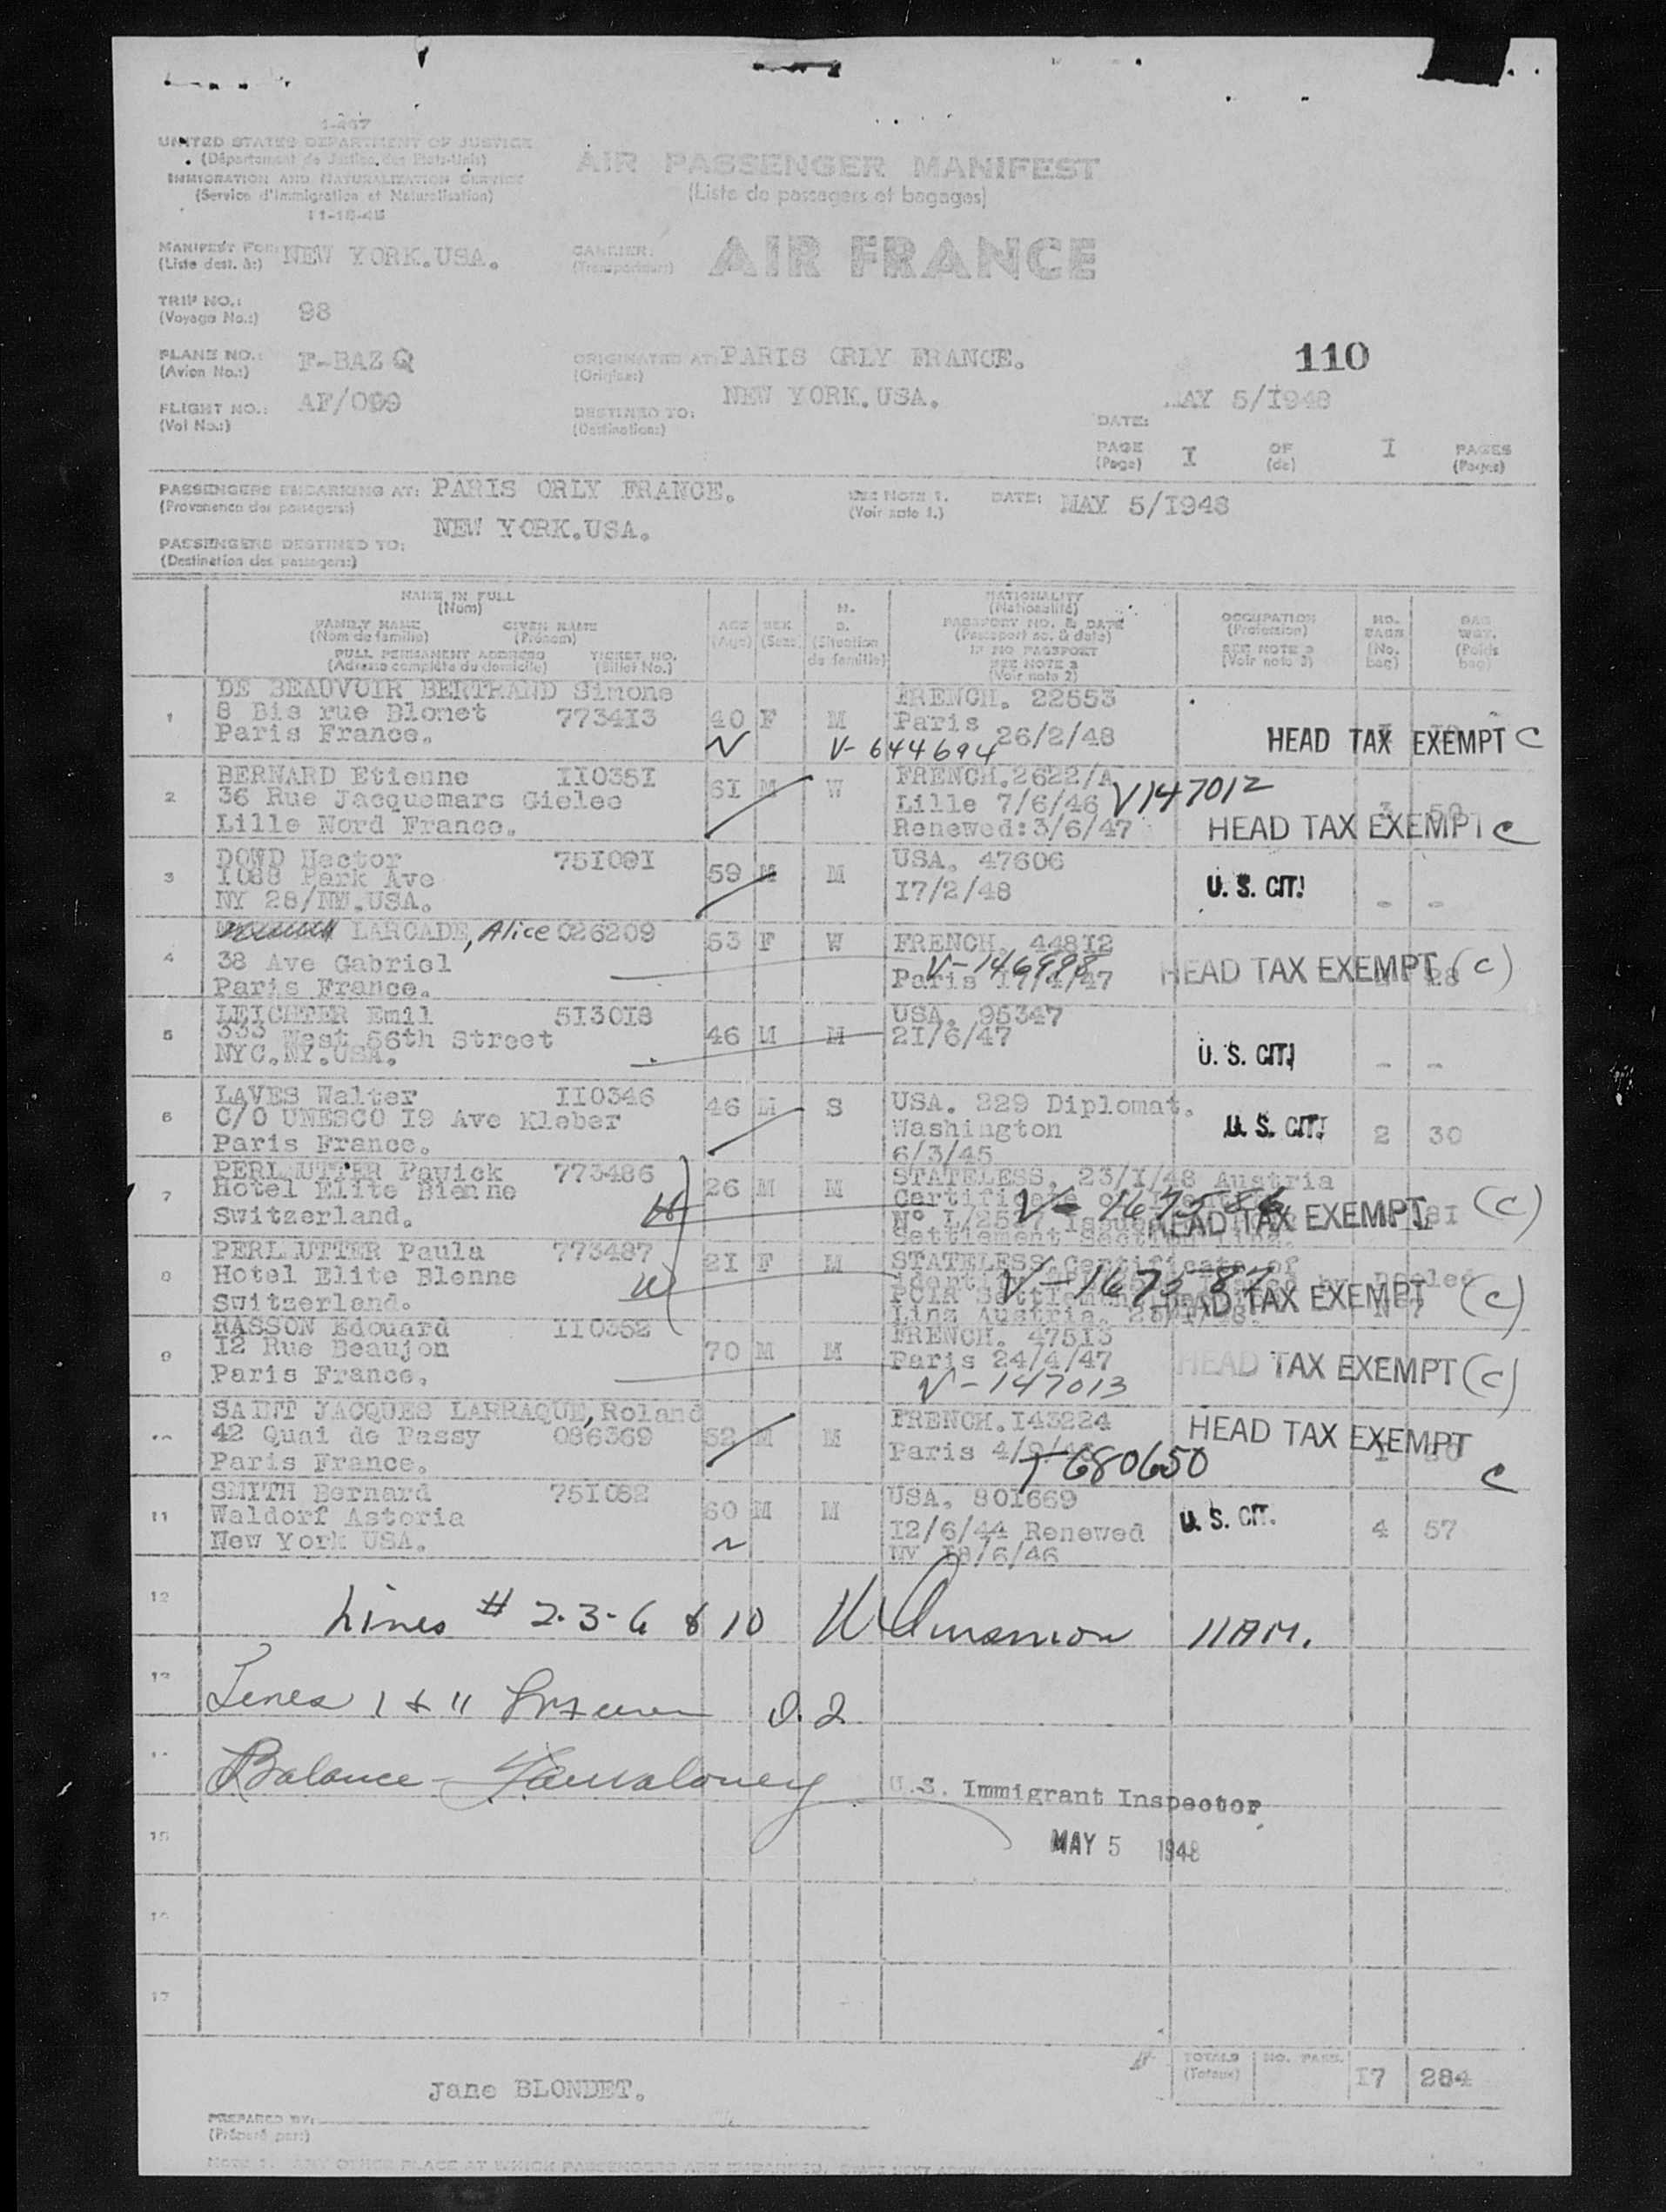 I-467
UNITED STATES DEPARTMENT OF JUSTICE
(Département de Justice des Etats-Unis)
IMMIGRATION AND NATURALIZATION SERVICE
(Service d'Immigration et Naturalisation)
11-18-45
AIR PASSENGER MANIFEST
(Liste de passagers et bagages)
MANIFEST FOR: NEW YORK.USA.
(Liste dest. à:)
CARRIER: AIR FRANCE
(Transporteur:)
TRIP NO.: 98
(Voyage No.:)
PLANE NO.: F-BAZ Q
(Avion No.:)
ORIGINATED AT: PARIS ORLY FRANCE.
(Origine:)
110
FLIGHT NO.: AF/099
(Vol No.:)
DESTINED TO: NEW YORK.USA.
(Destination:)
DATE: MAY 5/I948
PAGE I OF I PAGES
(Page) (de) (Pages)
PASSENGERS EMBARKING AT: PARIS ORLY FRANCE.
(Provenance des passagers:)
SEE NOTE 1.
(Voir note 1.)
DATE: MAY 5/I948
PASSENGERS DESTINED TO: NEW YORK.USA.
(Destination des passagers:)
NAME IN FULL
(Nom)
FAMILY NAME GIVEN NAME
(Nom de famille) (Prénom)
FULL PERMANENT ADDRESS TICKET NO.
(Adresse complète du domicile) (Billet No.)
AGE
(Age)
SEX
(Sexe)
M.
S.
(Situation
de famille)
NATIONALITY
(Nationalité)
PASSPORT NO. & DATE
(Passeport no. & date)
IF NO PASSPORT
SEE NOTE 2
(Voir note 2)
OCCUPATION
(Profession)
SEE NOTE 3
(Voir note 3)
NO.
BAGS
(No.
bag)
BAG
WGT.
(Poids
bag)
1 DE BEAUVOIR BERTRAND Simone FRENCH. 22553
8 Bis rue Blomet 7734I3 40 F M Paris
Paris France. V-644694 26/2/48 HEAD TAX EXEMPT C
2 BERNARD Etienne II035I 6I M W FRENCH.2622/A V147012
36 Rue Jacquemars Gielee Lille 7/6/46 3 50
Lille Nord France. Renewed:3/6/47 HEAD TAX EXEMPT C
3 DOWD Hector 75I08I 59 M M USA. 47606
I088 Park Ave I7/2/48 U. S. CIT. - -
NY 28/NW.USA.
4 LARCADE, Alice 026209 53 F W FRENCH. 448I2
38 Ave Gabriel V-146998 HEAD TAX EXEMPT (C)
Paris France. Paris I7/4/47 28
5 LEICHTER Emil 5I30I8 46 M M USA. 95347
333 West 56th Street 2I/6/47
NYC.NY.USA. U. S. CIT. - -
6 LAVES Walter II0346 46 M S USA. 229 Diplomat.
C/O UNESCO I9 Ave Kleber Washington U. S. CIT. 2 30
Paris France. 6/3/45
7 PERLMUTTER Pavick 773486 26 M M STATELESS. 23/I/48 Austria
Hotel Elite Bienne Certificate of V-167586
Switzerland. HEAD TAX EXEMPT (C)
Settlement Section Linz.
8 PERLMUTTER Paula 773487 2I F M STATELESS.Certificate of
Hotel Elite Bienne V-167587
Switzerland. HEAD TAX EXEMPT (C)
Linz Austria.
9 RASSON Edouard II0352 70 M M FRENCH. 475I3
I2 Rue Beaujon Paris 24/4/47 HEAD TAX EXEMPT (C)
Paris France. V-147013
10 SAINT JACQUES LARRAQUE, Roland FRENCH.I43224
42 Quai de Passy 086369 52 M M HEAD TAX EXEMPT
Paris France. Paris 680650 C
11 SMITH Bernard 75I082 60 M M USA. 80I669
Waldorf Astoria I2/6/44 Renewed U. S. CIT. 4 57
New York USA. NY I8/6/46
12 Lines # 2-3-6 & 10 11 AM.
13 Lines 1 & 11
14 Balance -
U.S. Immigrant Inspector
15 MAY 5 1948
16
17
TOTALS NO. PASS. I7 284
(Totaux)
Jane BLONDET.
PREPARED BY:
(Préparé par:)
NOTE 1. ANY OTHER PLACE AT WHICH PASSENGERS ARE EMBARKED,